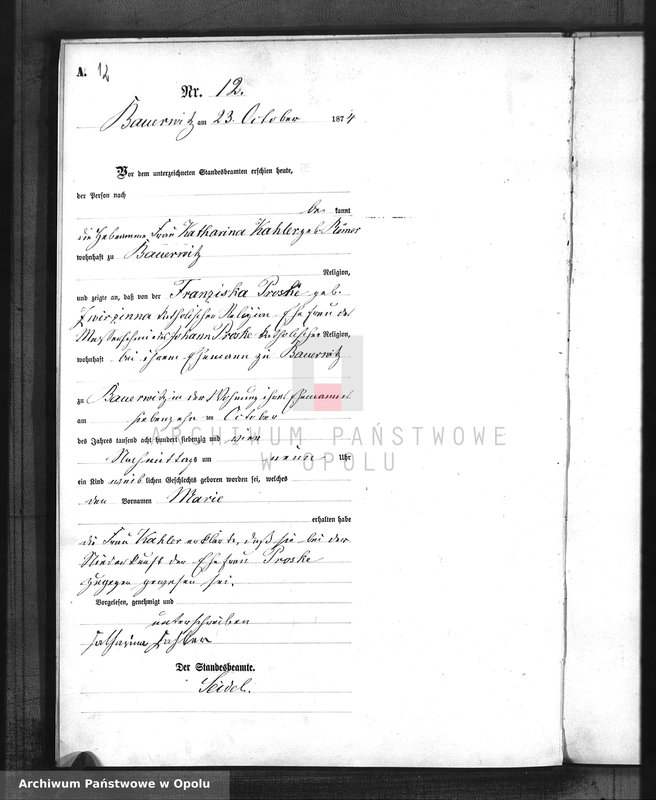 A. 12
Nr. 12.
Bauerwitz am 23. October 1874
Vor dem unterzeichneten Standesbeamten erschien heute,
der Person nach
be kannt
die Hebamme Frau Katharina Kahler geb. Römer
wohnhaft zu Bauerwitz
Religion,
und zeigte an, daß von der Franziska Proske geb.
Zwirzinna katholischer Religion Ehefrau des
Johann Proske katholischer Religion,
wohnhaft bei ihrem Ehemann zu Bauerwitz
zu Bauerwitz in der Wohnung ihres Ehemannes
am siebenzehn ten October
des Jahres tausend acht hundert siebenzig und vier
Nachmittags um neun Uhr
ein Kind weib lichen Geschlechts geboren worden sei, welches
den Vornamen Marie
erhalten habe
die Frau Kahler erklärte, daß sie bei der
Niederkunft der Ehefrau Proske
zugegen gewesen sei.
Vorgelesen, genehmigt und
unterschrieben
Catharina Kahler
Der Standesbeamte.
Seidel.
ARCHIWUM PAŃSTWOWE
W OPOLU
Archiwum Państwowe w Opolu